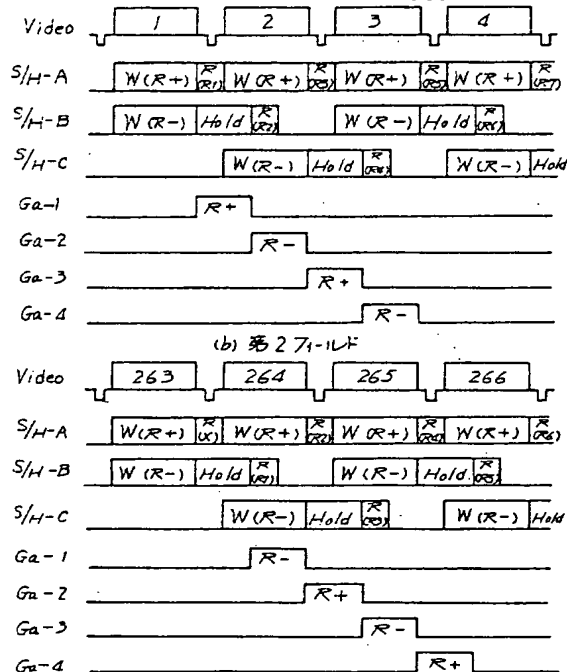 Video 1 2 3 4
S/H-A W(R+) R (R1) W(R+) R (R3) W(R+) R (R5) W(R+) R (R7)
S/H-B W(R-) Hold R (R2) W(R-) Hold R (R6)
S/H-C W(R-) Hold R (R4) W(R-) Hold
Ga-1 R+
Ga-2 R-
Ga-3 R+
Ga-4 R-
(b) 第2フィールド
Video 263 264 265 266
S/H-A W(R+) R (X) W(R+) R (R2) W(R+) R (R4) W(R+) R (R6)
S/H-B W(R-) Hold R (R1) W(R-) Hold R (R5)
S/H-C W(R-) Hold R (R3) W(R-) Hold
Ga-1 R-
Ga-2 R+
Ga-3 R-
Ga-4 R+